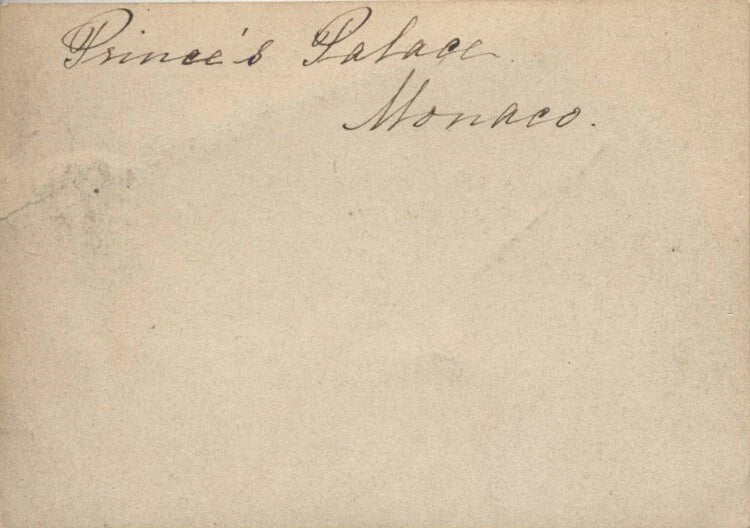 Prince's Palace.
Monaco.